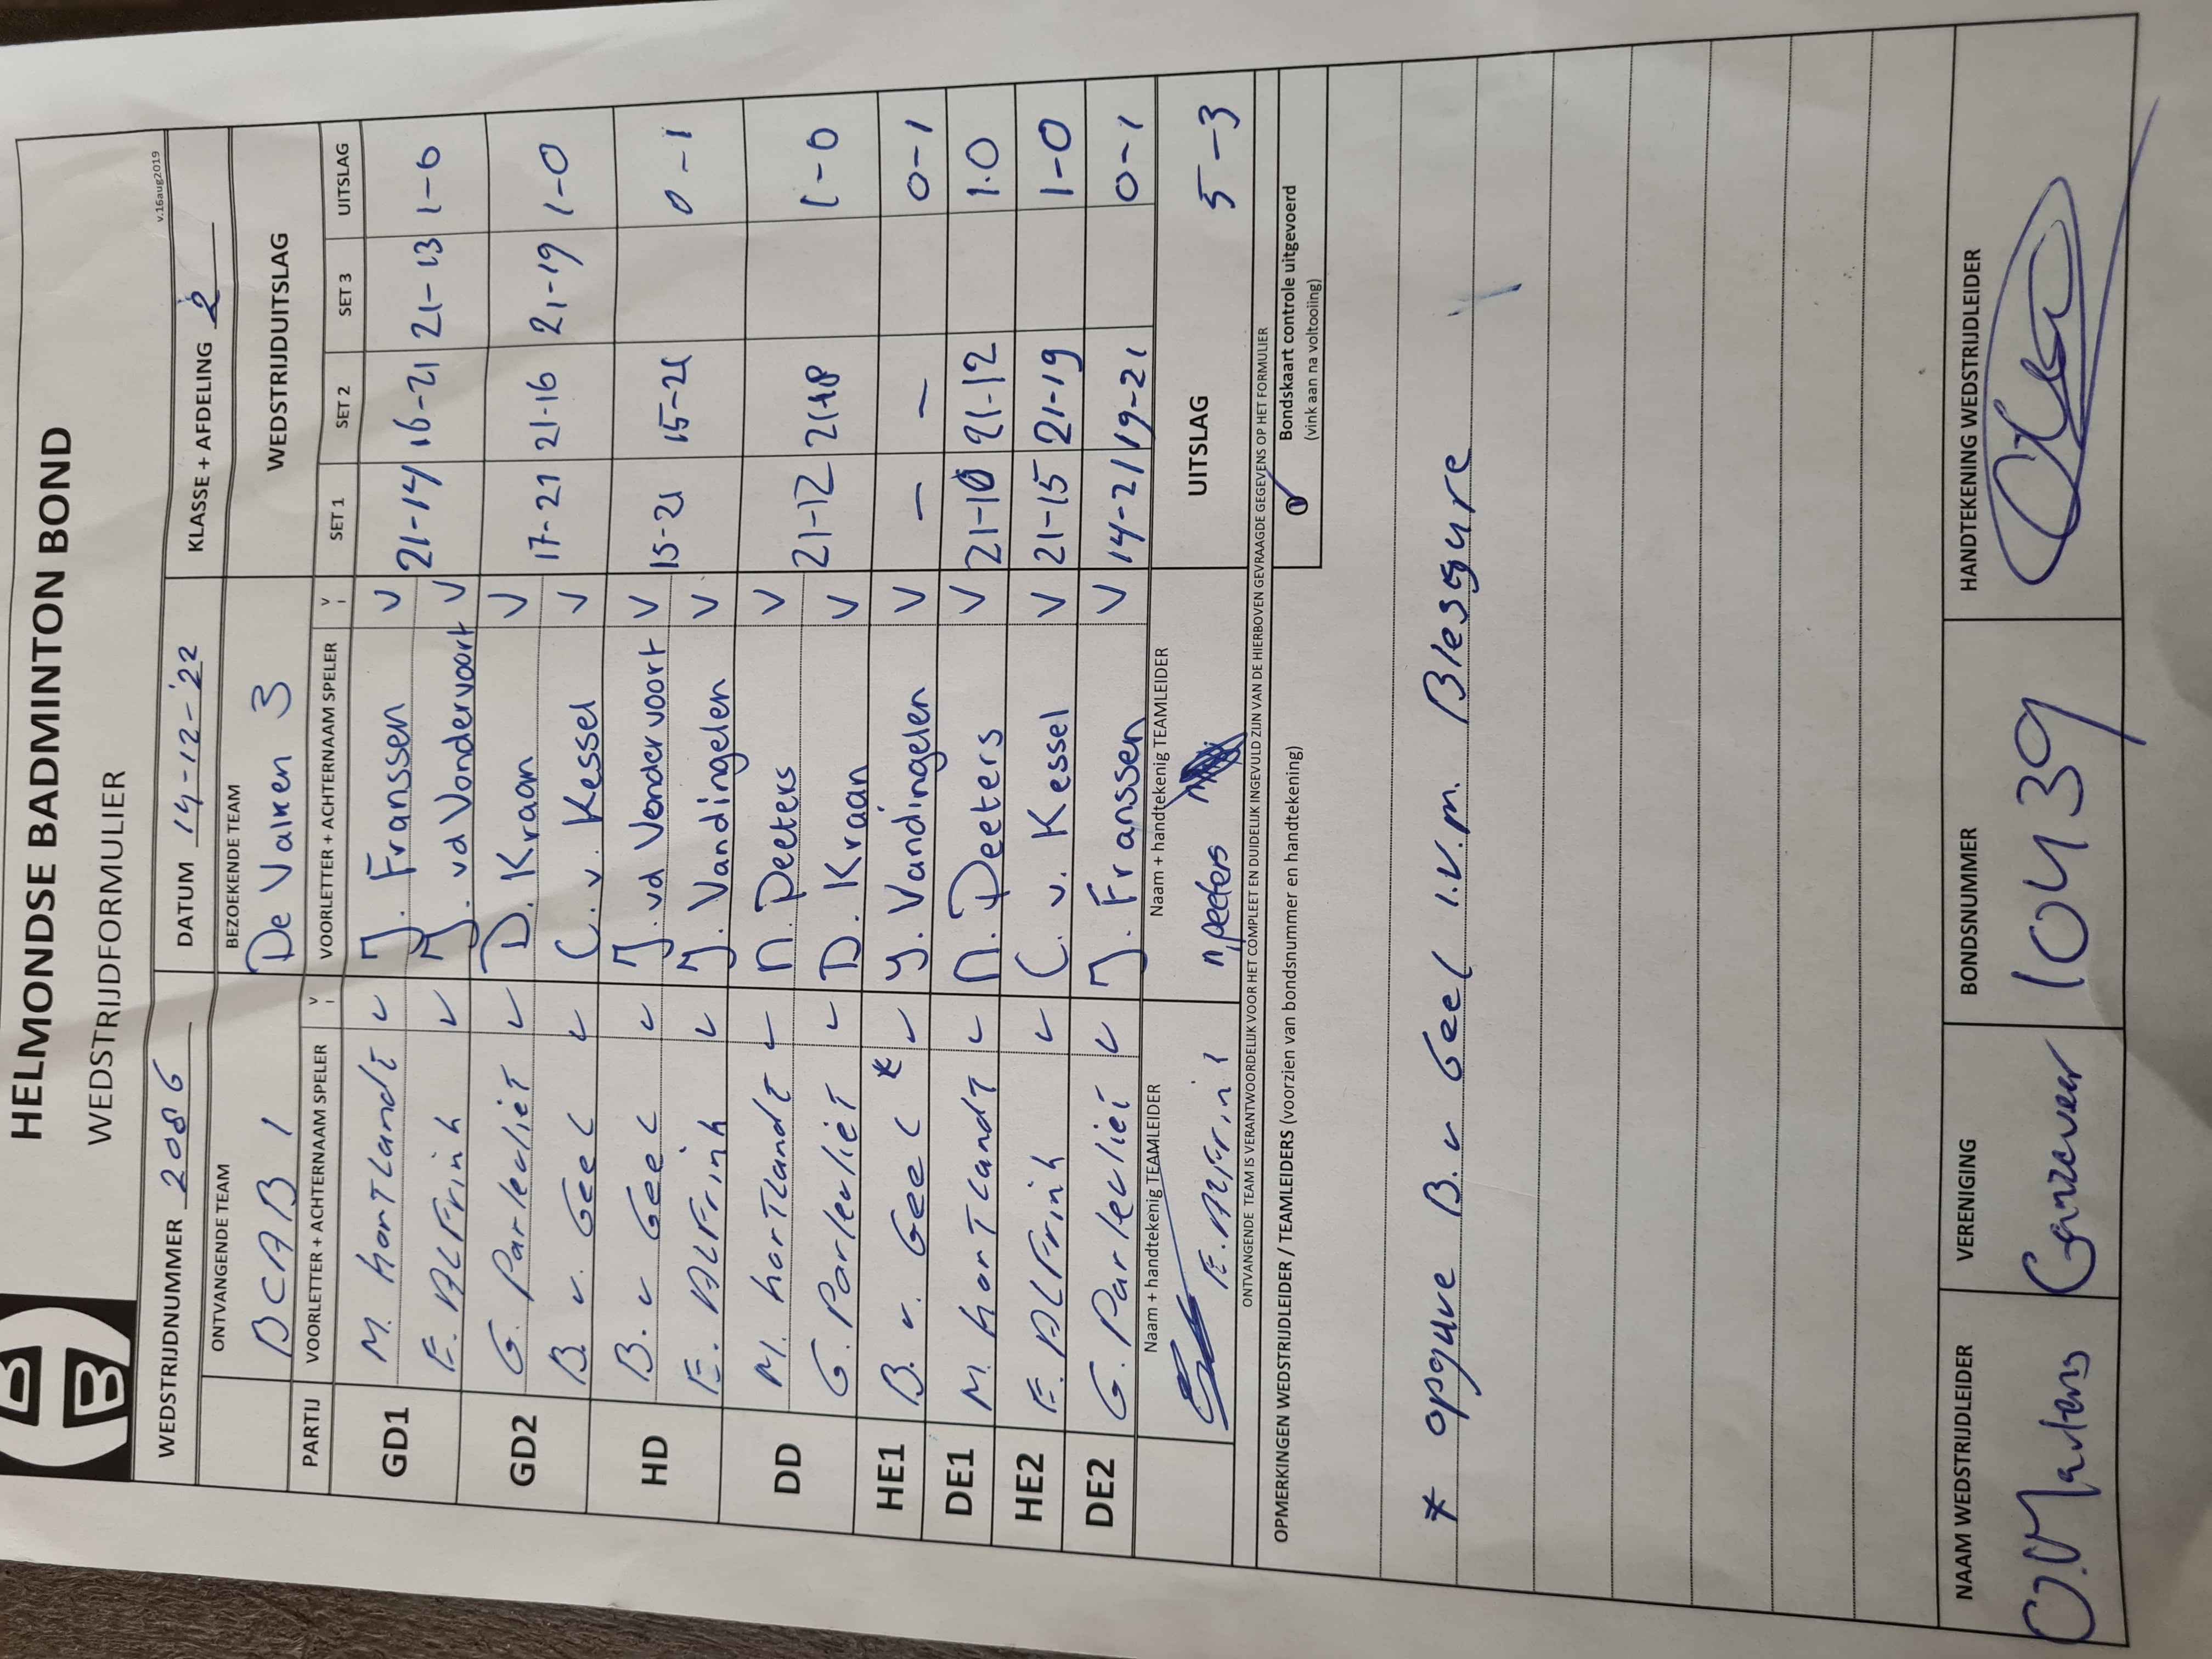 HELMONDSE BADMINTON BOND
WEDSTRIJDFORMULIER
v.16aug2019
WEDSTRIJDNUMMER 2086 DATUM 14-12-'22 KLASSE + AFDELING 2
ONTVANGENDE TEAM BEZOEKENDE TEAM WEDSTRIJDUITSLAG
BCAB 1 De Valken 3
PARTIJ VOORLETTER + ACHTERNAAM SPELER V VOORLETTER + ACHTERNAAM SPELER V SET 1 SET 2 SET 3 UITSLAG
GD1 M. hortlandt V J. Franssen V 21-14 16-21 21-13 1-0
E. Alfrink V J. vd Vondervoort V
GD2 G. Parlevliet V D. Kraan V 17-21 21-16 21-19 1-0
B. v. Geel V C. v. Kessel V
HD B. v Geel V J. vd Vondervoort V 15-21 15-21 0-1
E. Alfrink V J. Vandingelen V
DD M. hortlandt V n. Peeters V 21-12 21-18 1-0
G. Parlevliet V D. Kraan V
HE1 B. v. Geel * V J. Vandingelen V - - 0-1
DE1 M. hortlandt V n. Peeters V 21-10 21-12 1.0
HE2 E. Alfrink V C. v. Kessel V 21-15 21-19 1-0
DE2 G. Parlevliet V J. Franssen V 14-21 19-21 0-1
Naam + handtekenig TEAMLEIDER Naam + handtekenig TEAMLEIDER UITSLAG 5-3
E. Alfrink n. peeters
ONTVANGENDE TEAM IS VERANTWOORDELIJK VOOR HET COMPLEET EN DUIDELIJK INGEVULD ZIJN VAN DE HIERBOVEN GEVRAAGDE GEGEVENS OP HET FORMULIER
OPMERKINGEN WEDSTRIJDLEIDER / TEAMLEIDERS (voorzien van bondsnummer en handtekening)
Bondskaart controle uitgevoerd
(vink aan na voltooiing)
* opgave B. v Geel i.v.m. Blessure
NAAM WEDSTRIJDLEIDER VERENIGING BONDSNUMMER HANDTEKENING WEDSTRIJDLEIDER
Martens 10439